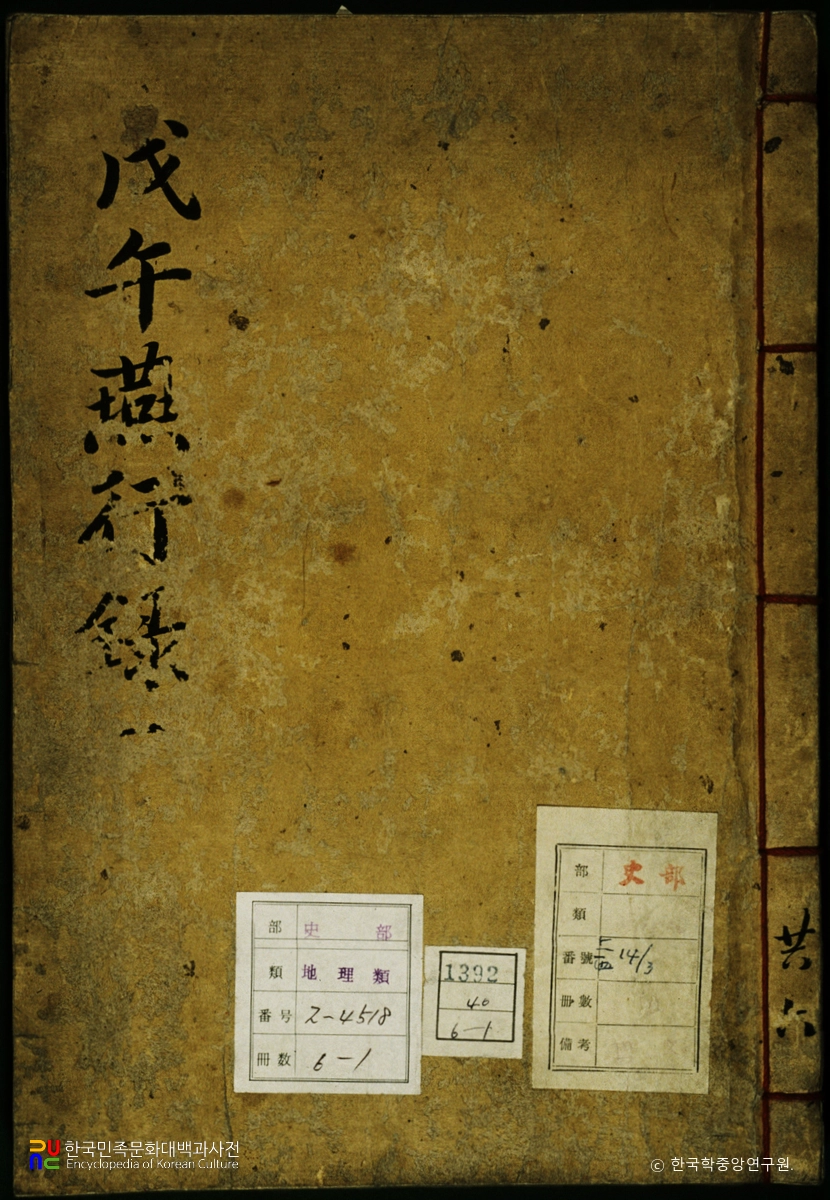 戊午燕行錄 一
共六
部 史部
類 地理類
番号 2-4518
冊数 6-1
1392
40
6-1
部 史部
類
番號 14/3
冊數
備考
한국민족문화대백과사전
Encyclopedia of Korean Culture
© 한국학중앙연구원